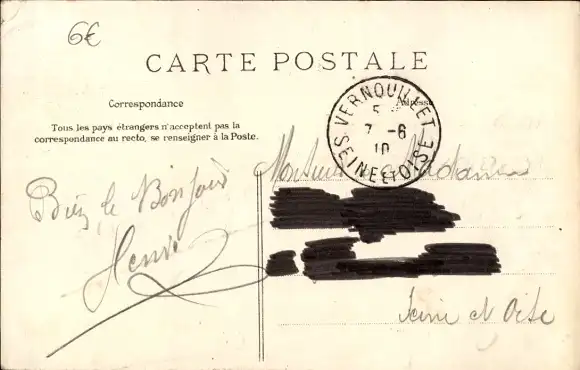 6€
CARTE POSTALE
Correspondance
Adresse
Tous les pays étrangers n'acceptent pas la
correspondance au recto, se renseigner à la Poste.
VERNOUILLET
5
7 -6
10
SEINE ET OISE
Monsieur Madame
Bien le Bonjour
Henri
Seine et Oise